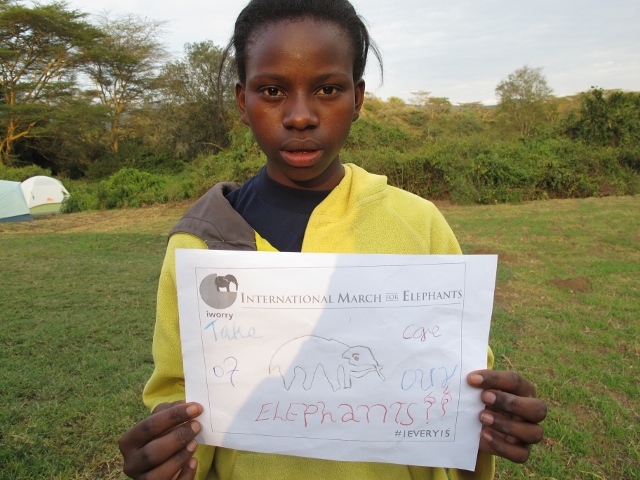 INTERNATIONAL MARCH FOR ELEPHANTS
iworry
Take care
of our
ELEPhANTS??
#1EVERY15